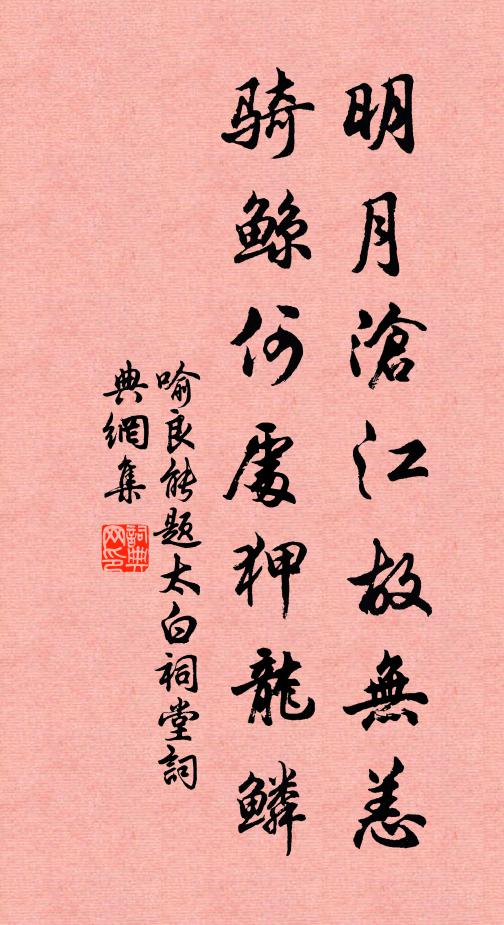 明月滄江故無恙
骑鲸何處狎龍鱗
喻良能题太白祠堂詞
典網集
詞典网印